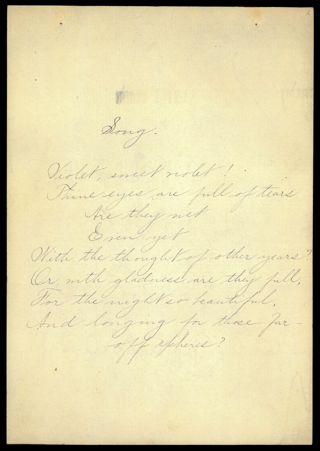 Song.
Violet, sweet violet!
Thine eyes are full of tears
Are they wet
Even yet
With the thought of other years?
Or with gladness are they full,
For the night so beautiful,
And longing for those far-
off spheres?